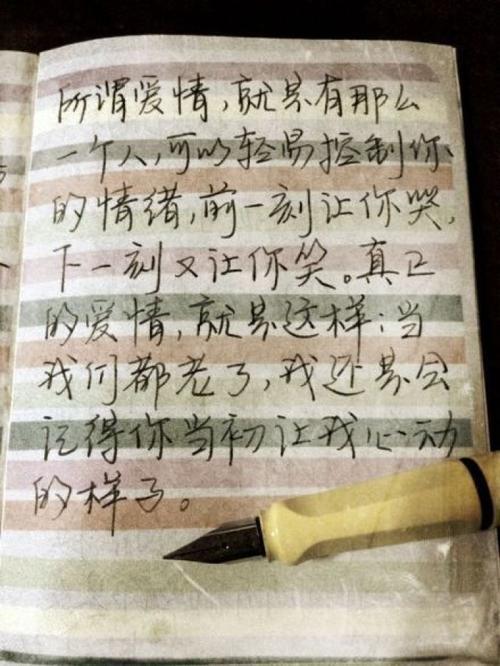 所谓爱情,就是有那么
一个人,可以轻易控制你
的情绪,前一刻让你哭,
下一刻又让你笑。真正
的爱情,就是这样:当
我们都老了,我还是会
记得你当初让我心动
的样子。